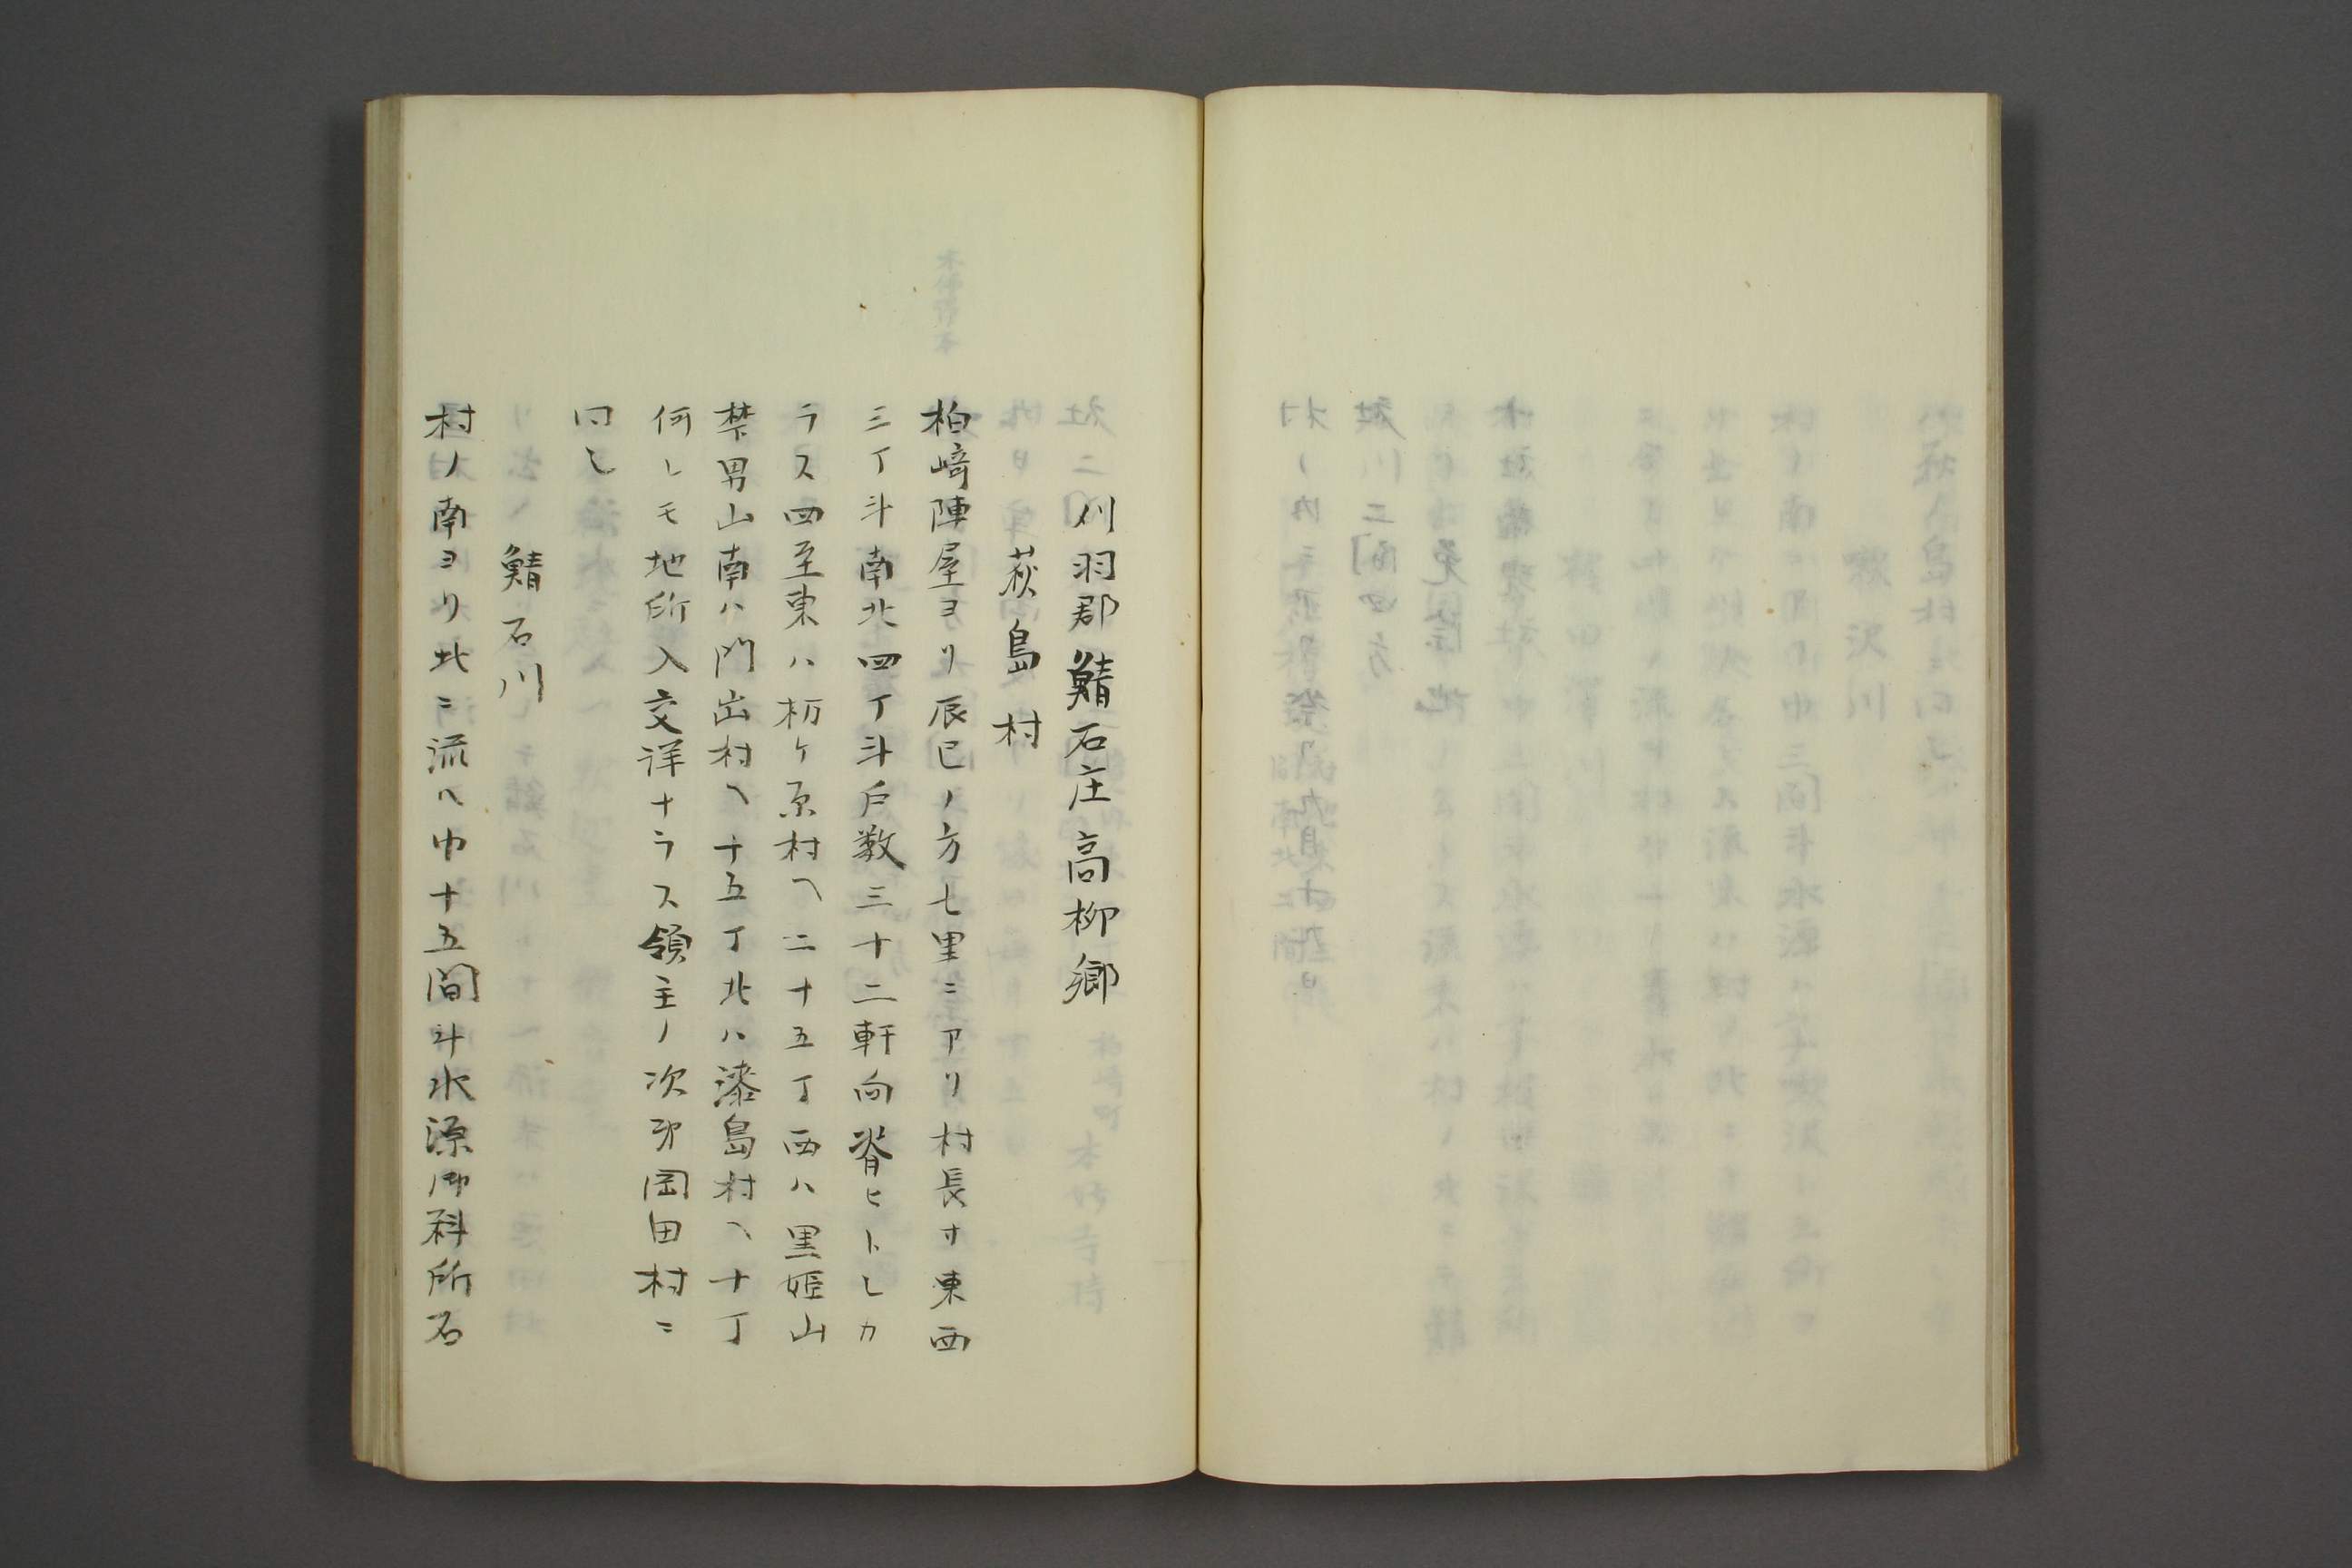 刈羽郡鯖石庄高柳郷
荻島村
柏﨑陣屋ヨリ辰巳ノ方七里ニアリ村長サ東西
三丁斗南北四丁斗戸数三十二軒向脊ヒトシカ
ラス四至東ハ栃ケ原村ヘ二十五丁西ハ黒姫山
禁男山南ハ門出村ヘ十五丁北ハ漆島村ヘ十丁
何レモ地所入交洋ナラス領主ノ次㐧岡田村ニ
同し
鯖石川
村ノ南ヨリ北ニ流ヘ巾十五間斗水源御料所石